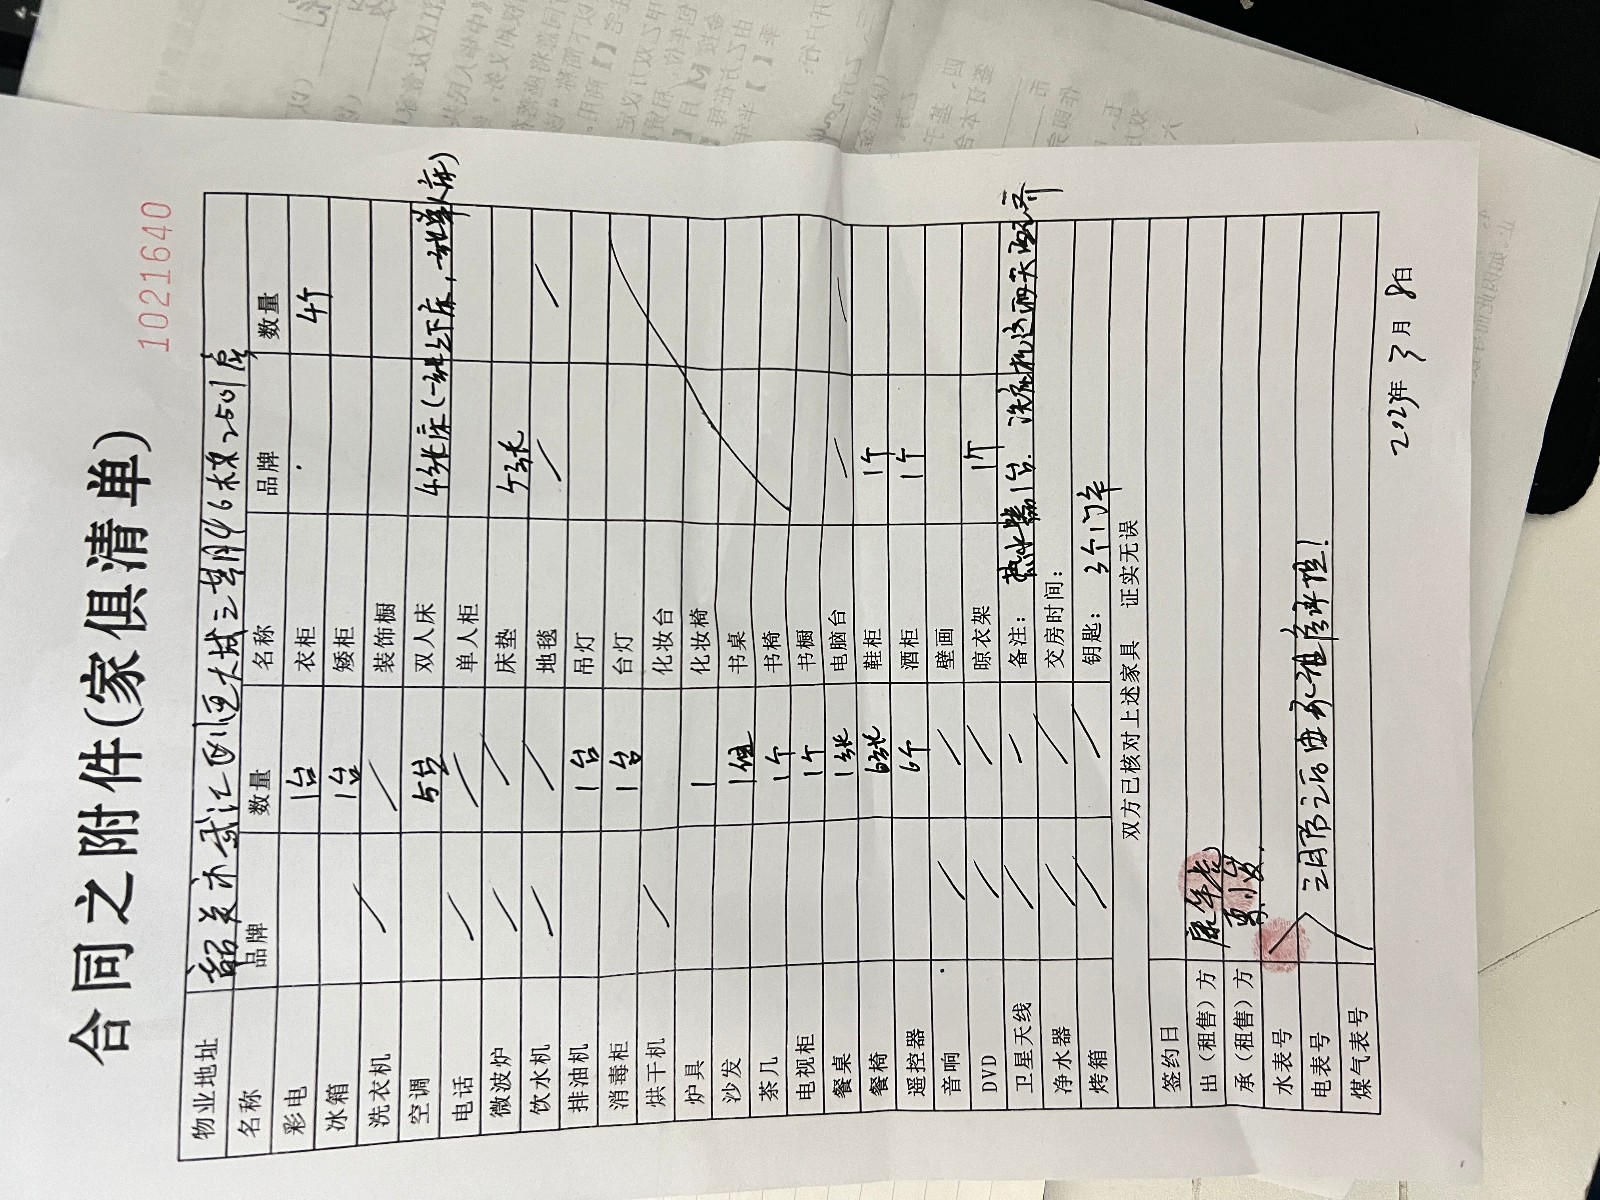 1021640
合同之附件(家俱清单)
物业地址 韶关市武江区恒大城三期46栋2501房
名称 品牌 数量 名称 品牌 数量
彩电 1台 衣柜 4个
冰箱 1台 矮柜
洗衣机 装饰橱
空调 5台 双人床 4张床(一张上下床,一张单人床)
电话 单人柜
微波炉 床垫 5张
饮水机 地毯
排油机 1台 吊灯
消毒柜 1台 台灯
烘干机 化妆台
炉具 1 化妆椅
沙发 1组 书桌
茶几 1个 书椅
电视柜 1个 书橱
餐桌 1张 电脑台
餐椅 6张 鞋柜 1个
遥控器 6个 酒柜 1个
音响 壁画
DVD 晾衣架 1个
卫星天线 备注: 热水器1台. 洗衣机这两天
净水器 交房时间:
烤箱 钥匙: 3个门卡
双方已核对上述家具 证实无误
签约日
出(租售)方
承(租售)方
水表号
电表号 三月
煤气表号
2023年 3月 8日